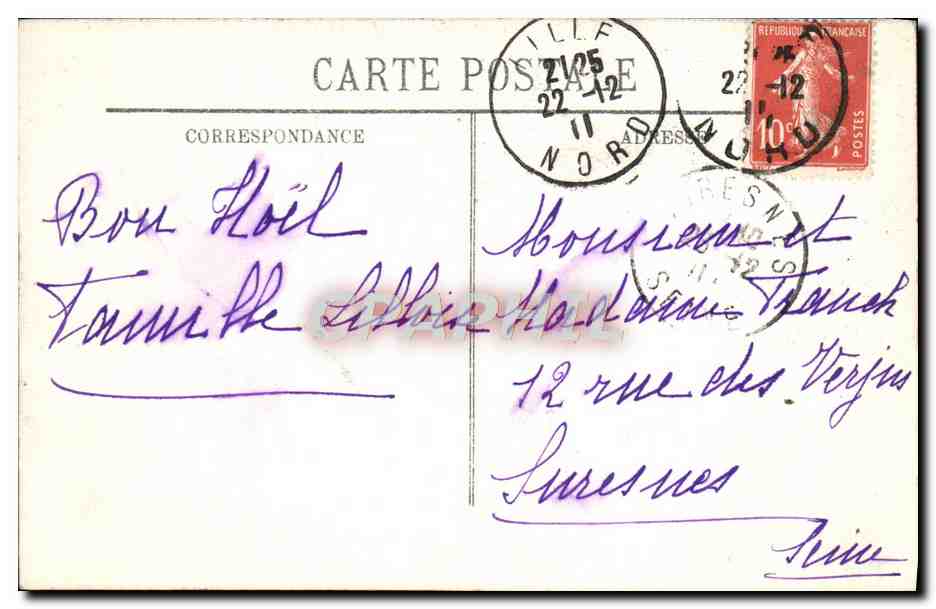 CARTE POSTALE
CORRESPONDANCE
ADRESSE
LILLE
21 25
22 -12
11
NORD
REPUBLIQUE FRANÇAISE
10c
POSTES
22 -12
11
NORD
SURESNES
Bon Hoël
Famille Lillois
Monsieur et
Madame Franck
12 rue des Verjus
Suresnes
Seine